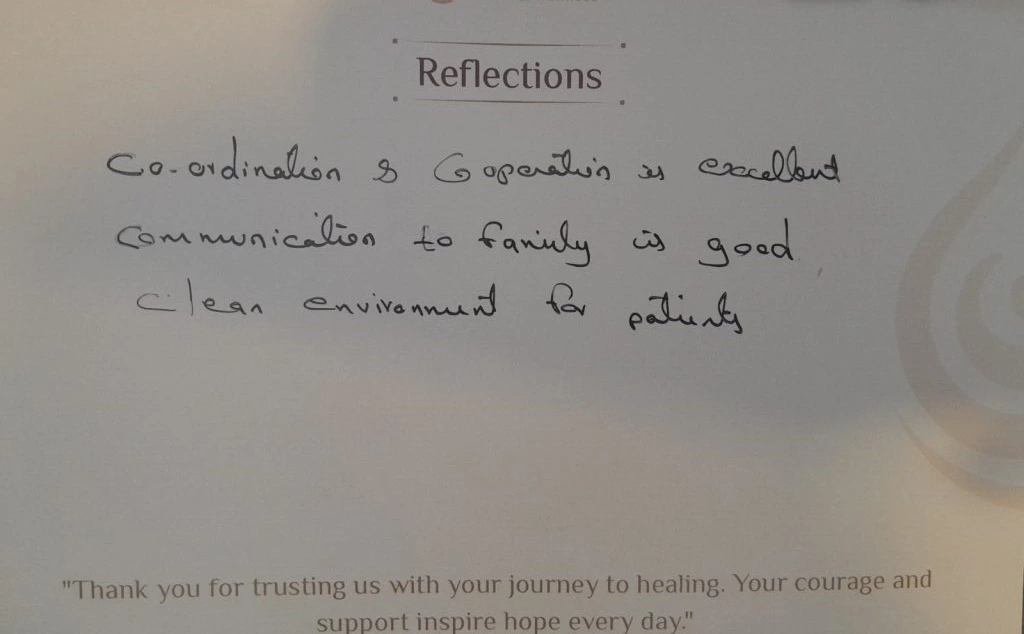 Reflections
Co-ordination & Cooperation is excellent
Communication to family is good
Clean environment for patients
"Thank you for trusting us with your journey to healing. Your courage and
support inspire hope every day."